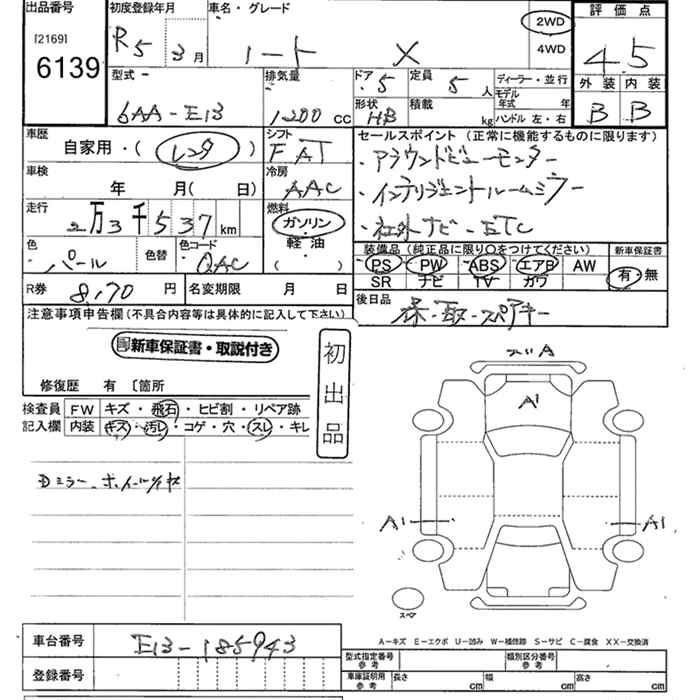 出品番号 初度登録年月 車名・グレード 評価点
[2169] 6139 R5 3月 ノート X 2WD 4WD 4.5
型式 6AA-E13 排気量 1200 CC ドア 5 定員 5人 ディーラー・並行 外装 内装
形状 HB 積載 kg モデル年式 年 ハンドル 左・右 B B
車歴 自家用・(レンタ) シフト FAT セールスポイント (正常に機能するものに限ります)
車検 年 月( 日) 冷房 AAC ・アラウンドビューモニター
・インテリジェントルームミラー
走行 2万3千537km 燃料 ガソリン・軽油 ( ) ・社外ナビ-ETC
色 パール 色替 色コード QAC 装備品 (純品に限り○をつけてください) 新車保証書
PS PW ABS エアB AW 有・無
SR ナビ TV カワ
R券 8,170円 名変期限 月 日 後日品 保-取-スペアキー
注意事項申告欄 (不具合内容等は具体的に記入して下さい)
新車保証書・取説付き
初出品
修復歴 有 〔箇所
検査員記入欄 FW キズ・飛石・ヒビ割・リペア跡
内装 キズ・汚レ・コゲ・穴・スレ・キレ
Dミラー-ホイールキズ
A
A1
A1 A1
スペア
A―キズ E―エクボ U―凹み W―補修跡 S―サビ C―腐食 XX―交換済
車台番号 E13-185943
登録番号
型式指定番号 参考 類別区分番号 参考
車庫証明用 参考 長さ cm 幅 cm 高さ cm